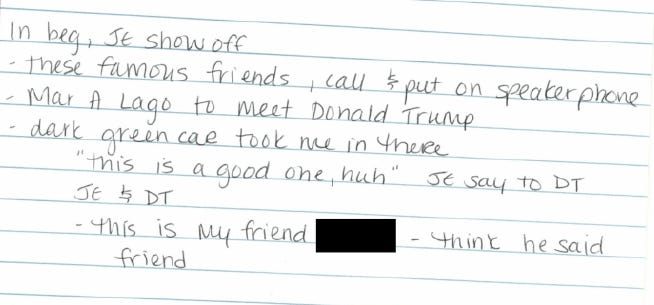 In beg, JE show off
- these famous friends, call & put on speaker phone
- Mar A Lago to meet Donald Trump
- dark green car took me in there
"this is a good one, huh" JE say to DT
JE & DT
- this is my friend - think he said
friend